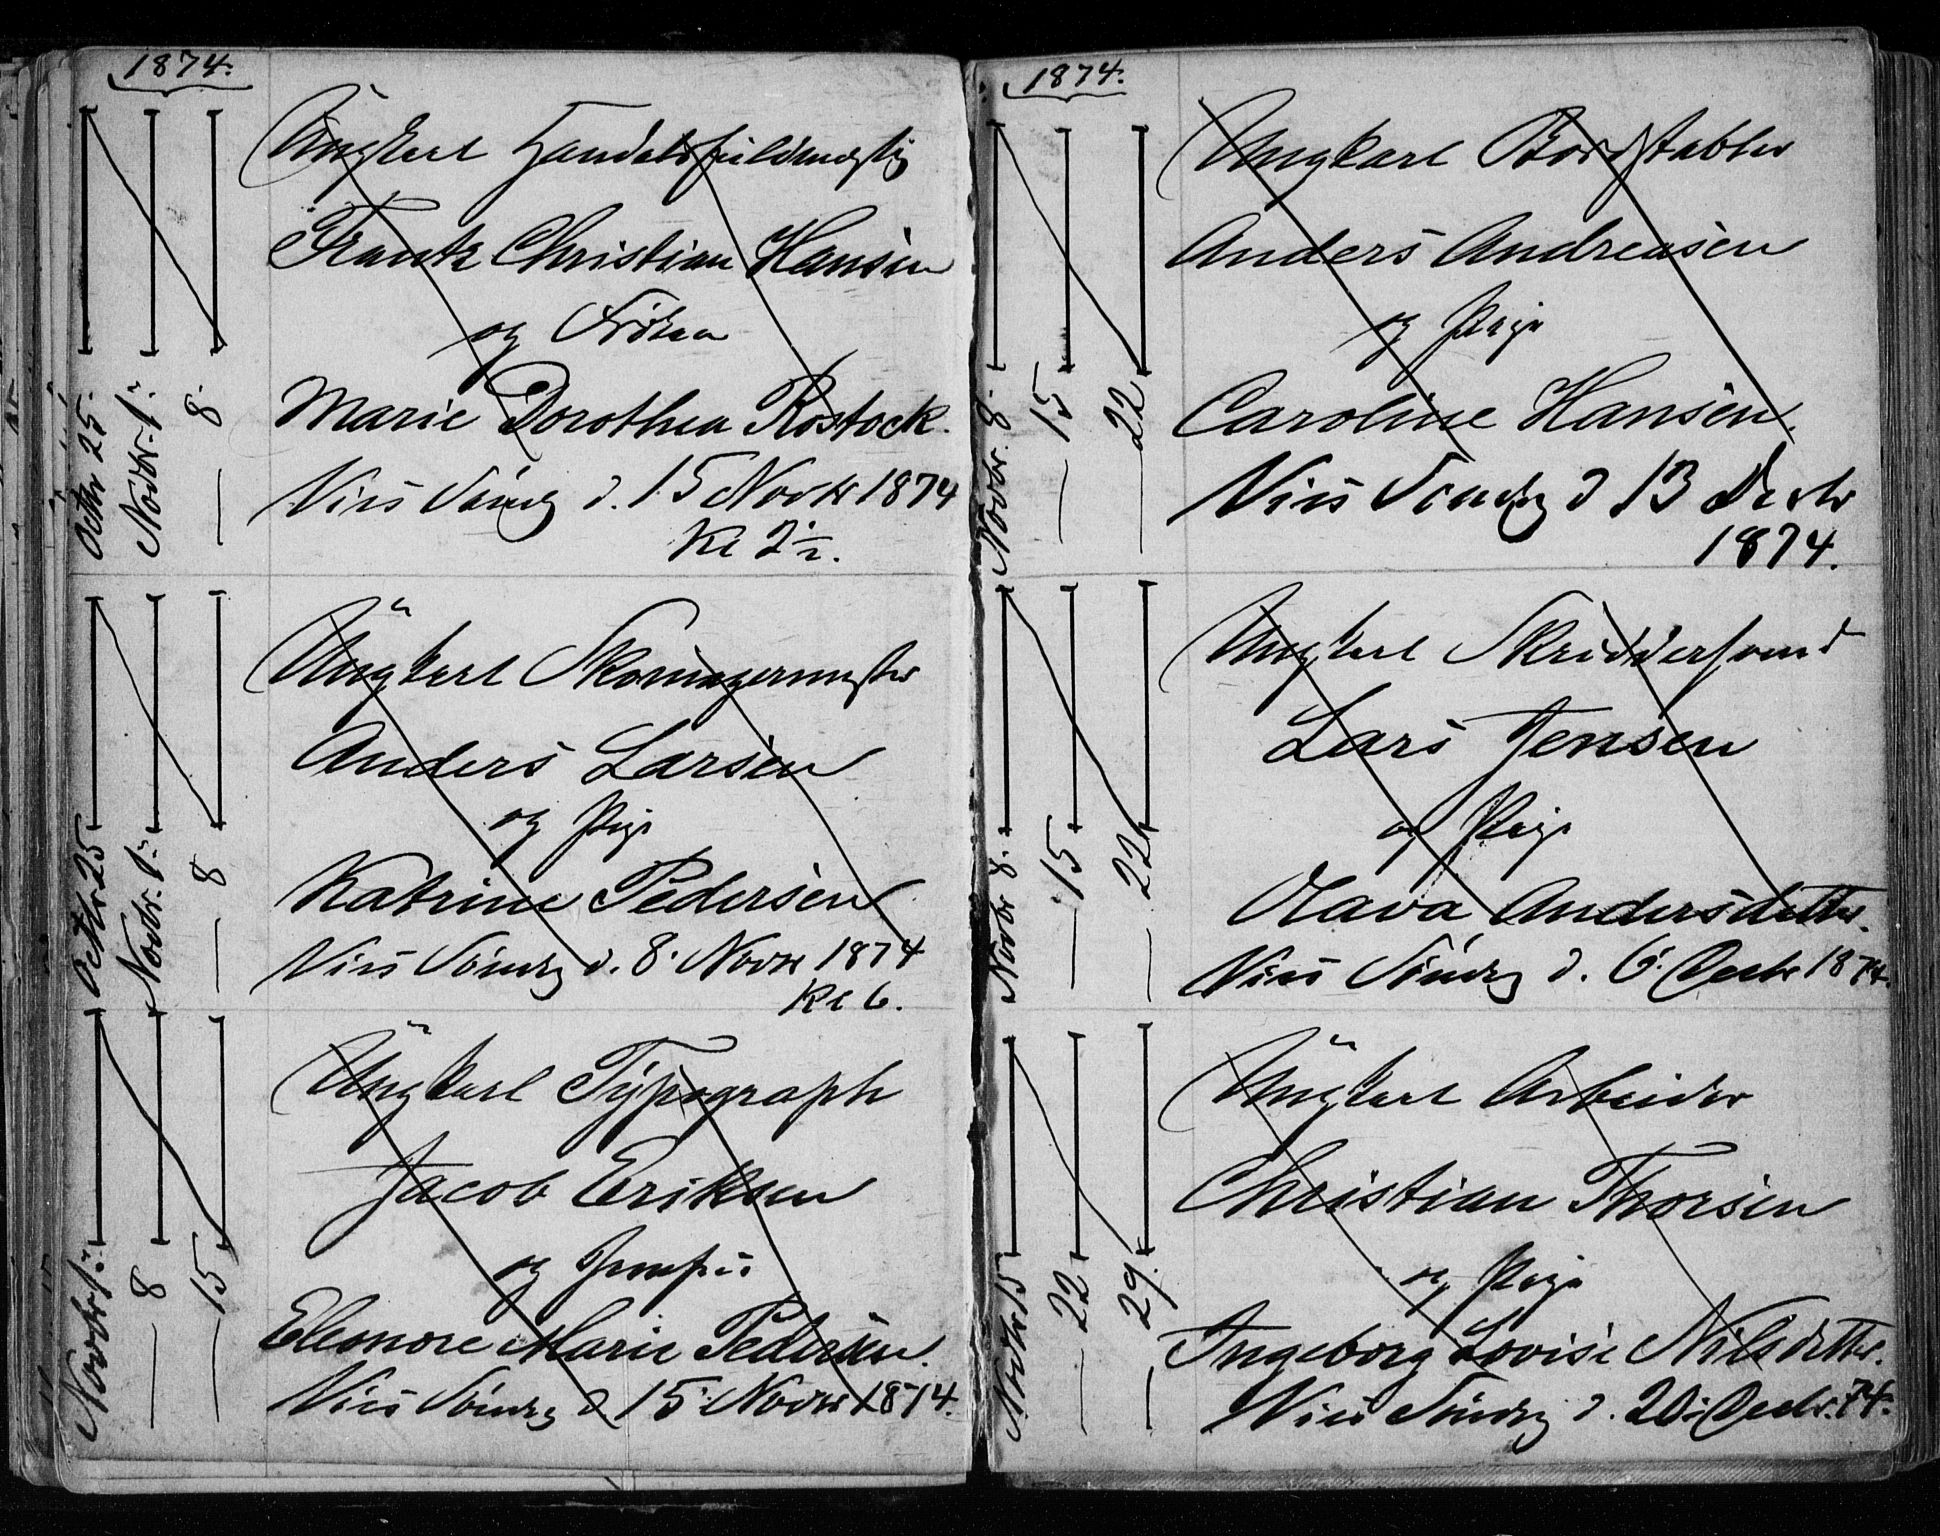 1874.
Octbr 25.
Novbr. 1ː
— 8.
Ungkarl Handelsfuldmægtig
Frantz Christian Hansen
og Frøken
Marie Dorothea Rostock.
Vies Søndag d. 15 Novbr 1874
Kl 2½.
Octbr 25
Novbr. 1ː
— 8
Ungkarl Skomagermester
Anders Larsen
og Pige
Katrine Pedersen
Vies Søndag d. 8. Novbr 1874
Kl 6.
Novbr 1ː
— 8
— 15
Ungkarl Typograph
Jacob Eriksen
og Jomfru
Eleonore Marie Pedersen.
Vies Søndag d 15. Novbr 1874.
1874.
Novbr. 8.
— 15
— 22
Ungkarl Bordstabler
Anders Andreasen
og Pige
Caroline Hansen.
Vies Søndag d 13 Decbr
1874.
Novbr 8.
— 15
— 22
Ungkarl Skriddersvend
Lars Jensen
og Pige
Olava Andersdatter.
Vies Søndag d. 6. Decbr 1874.
Novbr 15
— 22
— 29.
Ungkarl Arbeider
Christian Thorsen
og Pige
Ingeborg Lovise Nilsdatter.
Vies Søndag d. 20 Decbr. 74.